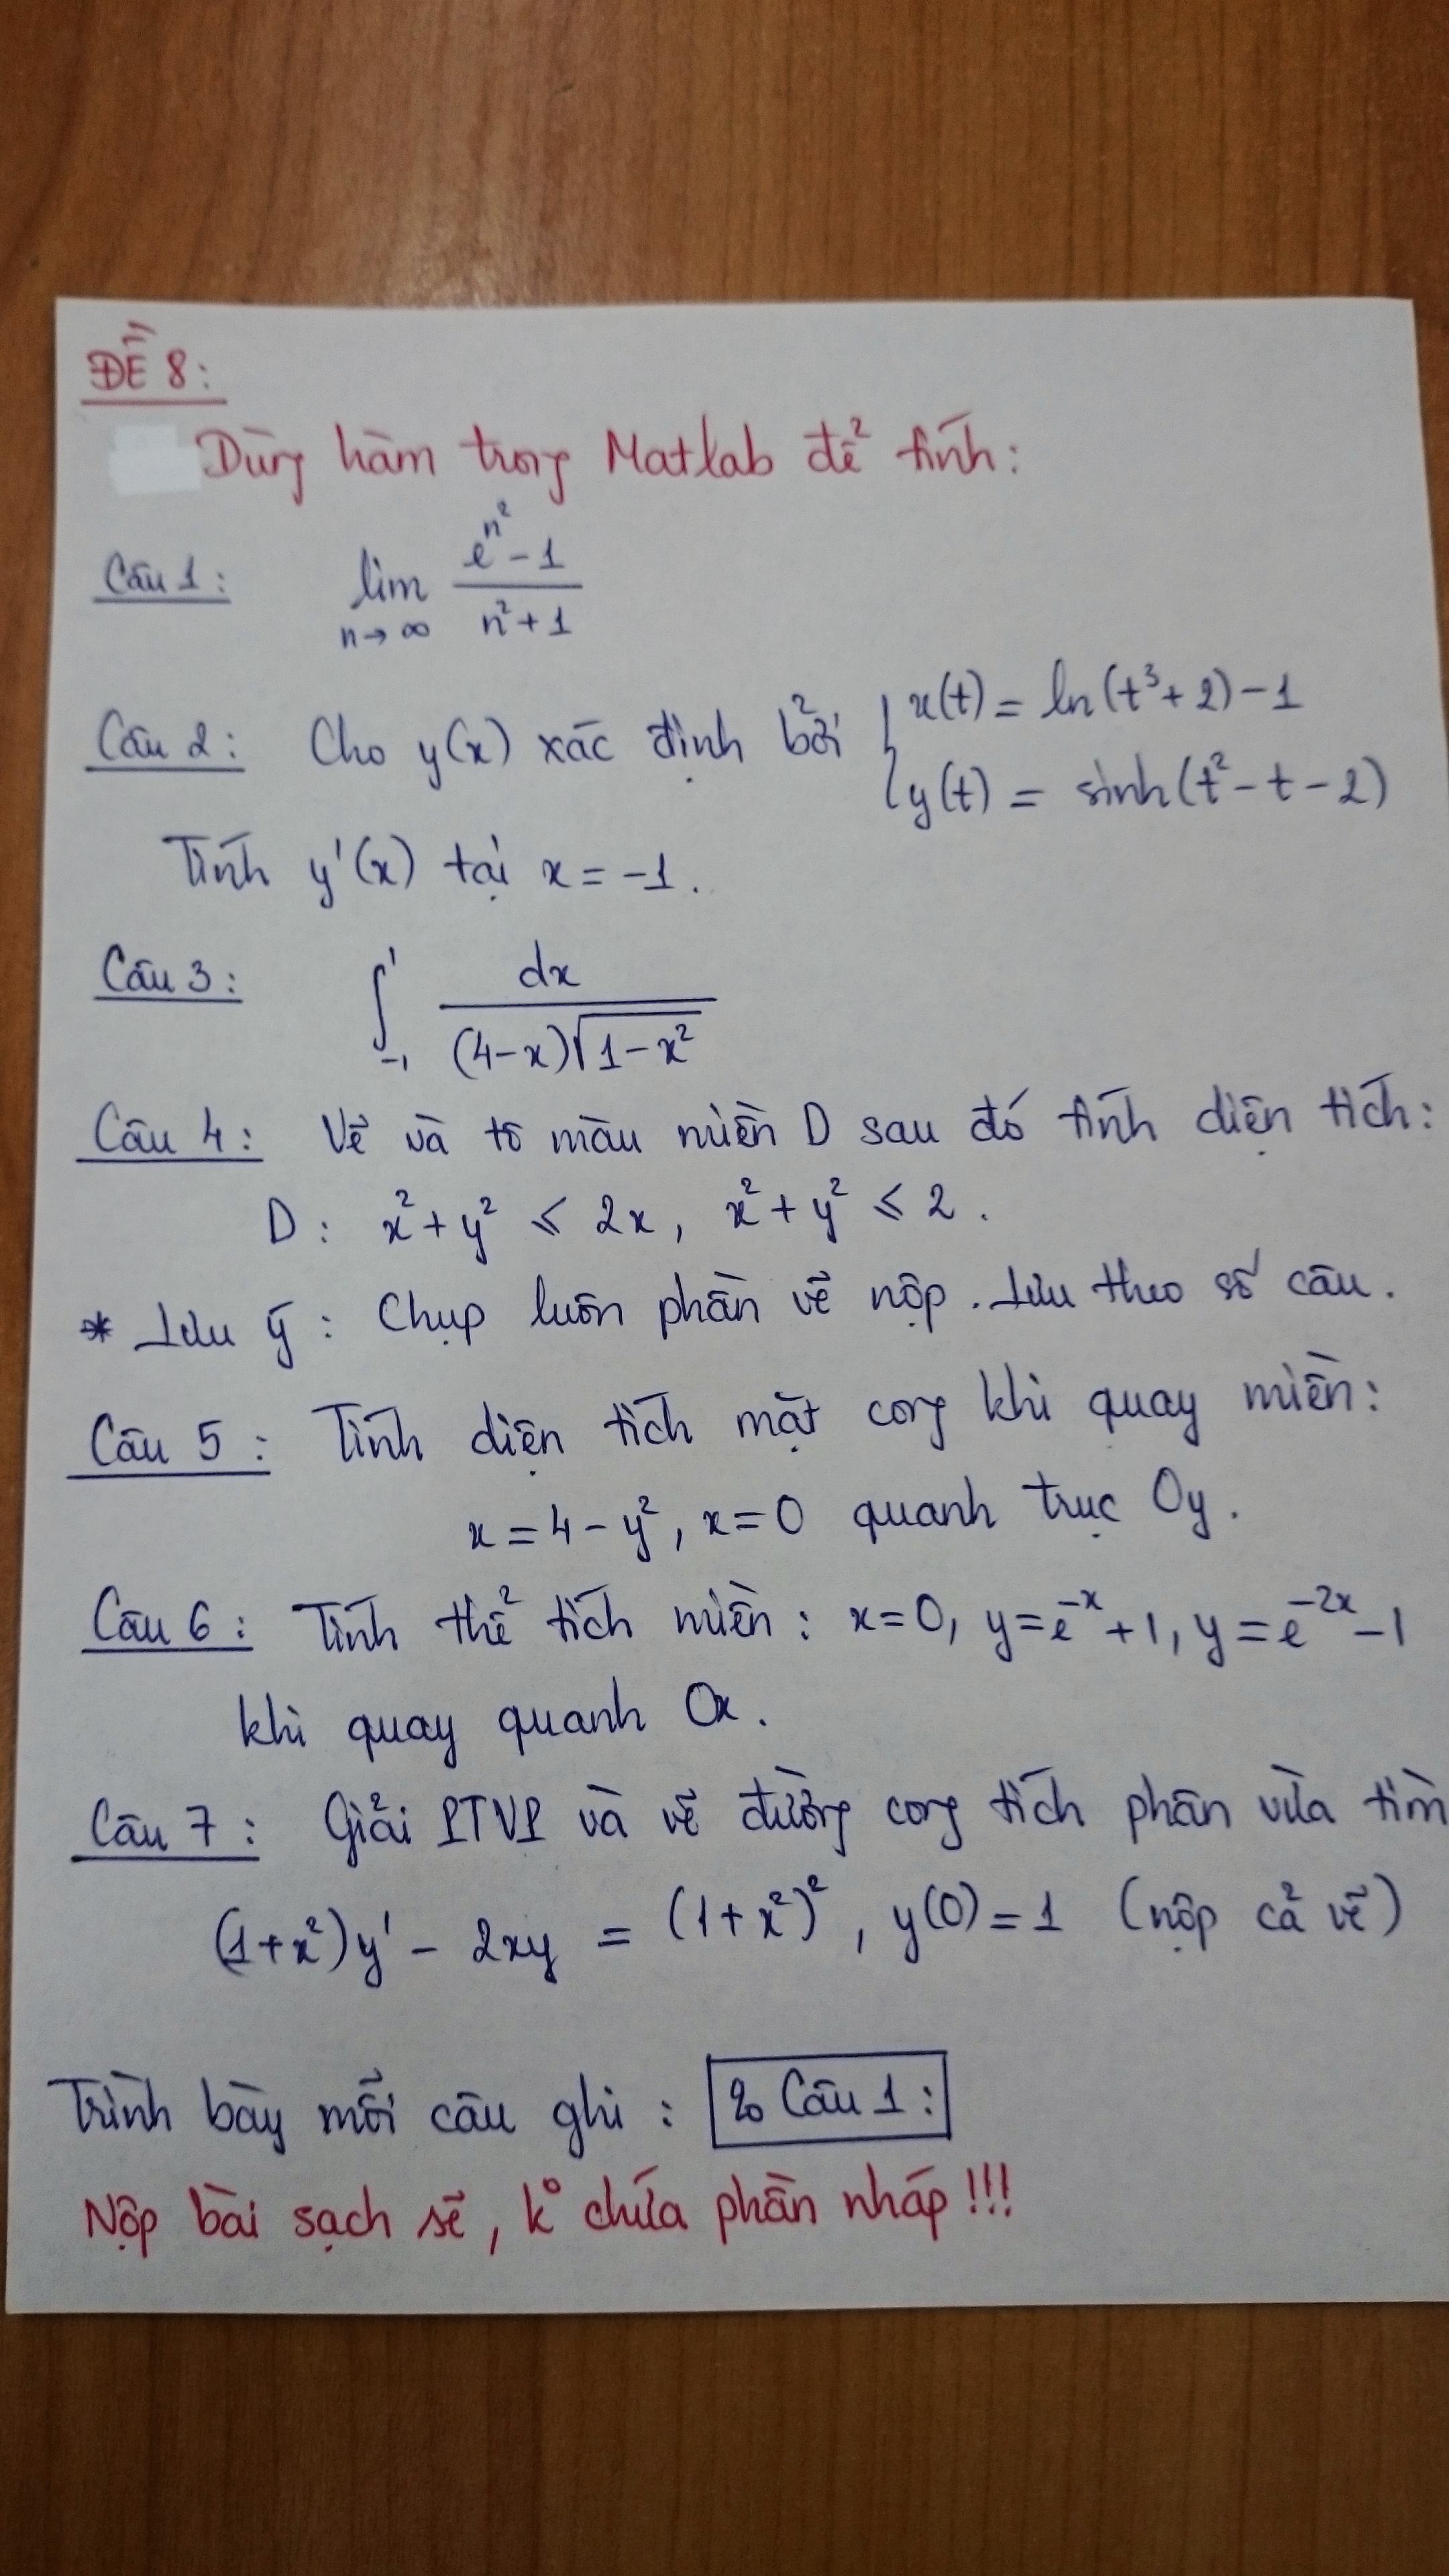 ĐỀ 8:
Dùng hàm trong Matlab để tính:
Câu 1: lim n→∞ (e^(n²) - 1)/(n² + 1)
Câu 2: Cho y(x) xác định bởi { x(t) = ln(t³ + 2) - 1
y(t) = sinh(t² - t - 2)
Tính y'(x) tại x = -1.
Câu 3: ∫₋₁¹ dx/((4-x)√(1-x²))
Câu 4: Vẽ và tô màu miền D sau đó tính diện tích:
D: x² + y² ≤ 2x, x² + y² ≤ 2.
* Lưu ý: Chụp luôn phần vẽ nộp. Lưu theo số câu.
Câu 5: Tính diện tích mặt cong khi quay miền:
x = 4 - y², x = 0 quanh trục Oy.
Câu 6: Tính thể tích miền: x=0, y=e⁻ˣ+1, y=e⁻²ˣ-1
khi quay quanh Ox.
Câu 7: Giải PTVP và vẽ đường cong tích phân vừa tìm
(1+x²)y' - 2xy = (1+x²)², y(0)=1 (nộp cả vẽ)
Trình bày mỗi câu ghi: % Câu 1:
Nộp bài sạch sẽ, k° chứa phần nháp!!!